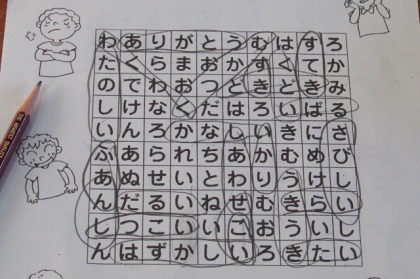 わありがとうむはすろ
たくらまおかすくてか
のでわおつどきどきみ
しけなくだはろいばる
いんろかなしいきにさ
ふあられちあかむめび
あぬせいとわりうけし
んだるいねせむきらい
しつこいいごおういし
んはずかしいろきたい